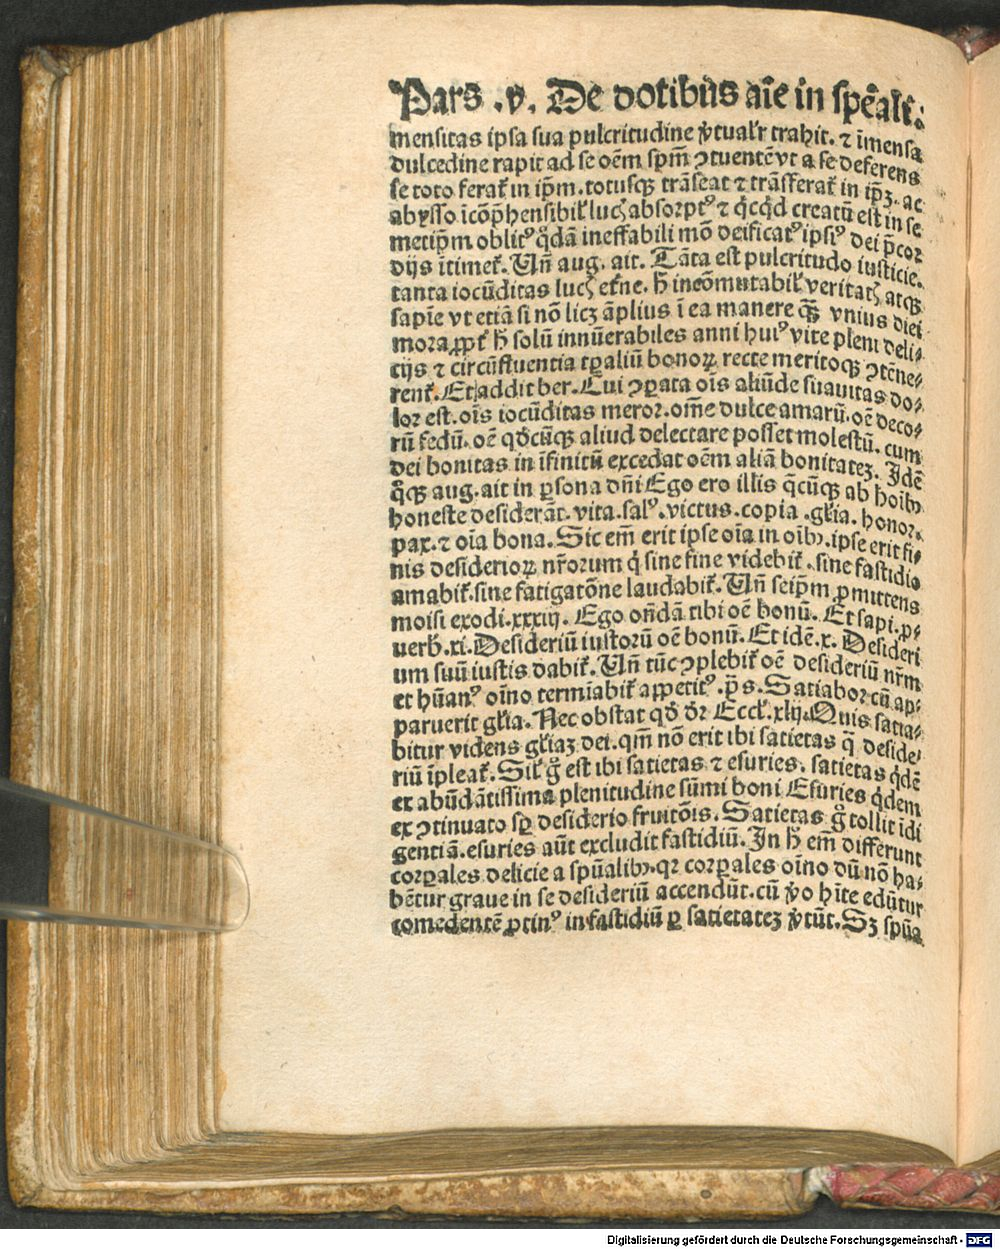 Pars .v. De dotibus aīe in spēalī.
mensitas ipsa sua pulcritudine ꝟtualr̄ trahit. ⁊ īmensa
dulcedine rapit ad se oēm spm̄ ↄtuentē vt a se deferens
se toto ferat᷑ in ip̄m. totusqꝫ trāseat ⁊ trāsferat᷑ in ip̄ꝫ. ac
abysso īcōp̄hensibil᷑ luc absorptꝰ ⁊ qͥcqͥd creatū est in se
metip̄m oblitꝰ qͦdā ineffabili mō deificatꝰ ipsiꝰ dei p̄cor
dijs ītimet᷑. Vn̄ aug. ait. Tāta est pulcritudo iusticie.
tanta iocūditas luc et᷑ne. h̄ incōmutabil᷑ veritat atqꝫ
sapīe vt etiā si nō licꝫ āplius ī ea manere qͣꝫ vnius diei
mora ꝓpt᷑ h̄ solū innūerabiles anni huiꝰ vite pleni deli⸗
cijs ⁊ circūfluentia tꝑaliū bonoꝝ recte meritoqꝫ ↄtēne⸗
rent᷑. Et addit ber. Cui ↄꝑata oīs aliūde suauitas do⸗
lor est. oīs iocūditas meror. om̄e dulce amarū. oē deco⸗
rū fedū. oē qdͦcūqꝫ aliud delectare posset molestū. cum
dei bonitas in īfinitū excedat oēm aliā bonitateꝫ. Idē
qͦqꝫ aug. ait in ꝑsona dn̄i Ego ero illis qͥcūqꝫ ab hoībꝰ
honeste desiderāt᷑. vita. salꝰ. victus. copia .gl᷑ia. honor.
pax. ⁊ oīa bona. Sic em̄ erit ipse oīa in oībꝰ. ipse erit fi⸗
nis desiderioꝝ nr̄orum qͥ sine fine videbit᷑. sine fastidio
amabit᷑. sine fatigatōne laudabit᷑. Vn̄ seip̄m ꝓmittens
moisi exodi. xxxiij. Ego on̄dā tibi oē bonū. Et sapi. ꝓ⸗
uerb. xi. Desideriū iustorū oē bonū. Et idē. x. Desideri
um suū iustis dabit᷑. Vn̄ tūc ↄplebit᷑ oē desideriū nr̄m
et hūanꝰ oīno termīabit᷑ appetitꝰ. p̄s. Satiabor cū ap⸗
paruerit gl᷑ia. Nec obstat qd̓ dr̄ Eccl᷑. xlij. Quis satia⸗
bitur videns gl᷑iaꝫ dei. qm̄ nō erit ibi satietas q̄ deside⸗
riū īpleat᷑. Sil᷑ gͦ est ibi satietas ⁊ esuries. satietas qͥdē
ex abūdātissima plenitudine sūmi boni Esuries qͥdem
ex ↄtinuato sꝑ desiderio fruitōis. Satietas gͦ tollit īdi
gentiā. esuries aūt excludit fastidiū. In h̄ em̄ differunt
corꝑales delicie a spūalibꝰ. qꝛ corꝑales oīno dū nō ha⸗
bētur graue in se desideriū accendūt. cū ꝟo hīte edūtur
comedentē ꝓtinꝰ in fastidiū ꝑ satietateꝫ ꝟtūt. Sꝫ spūa
Digitalisierung gefördert durch die Deutsche Forschungsgemeinschaft - DFG